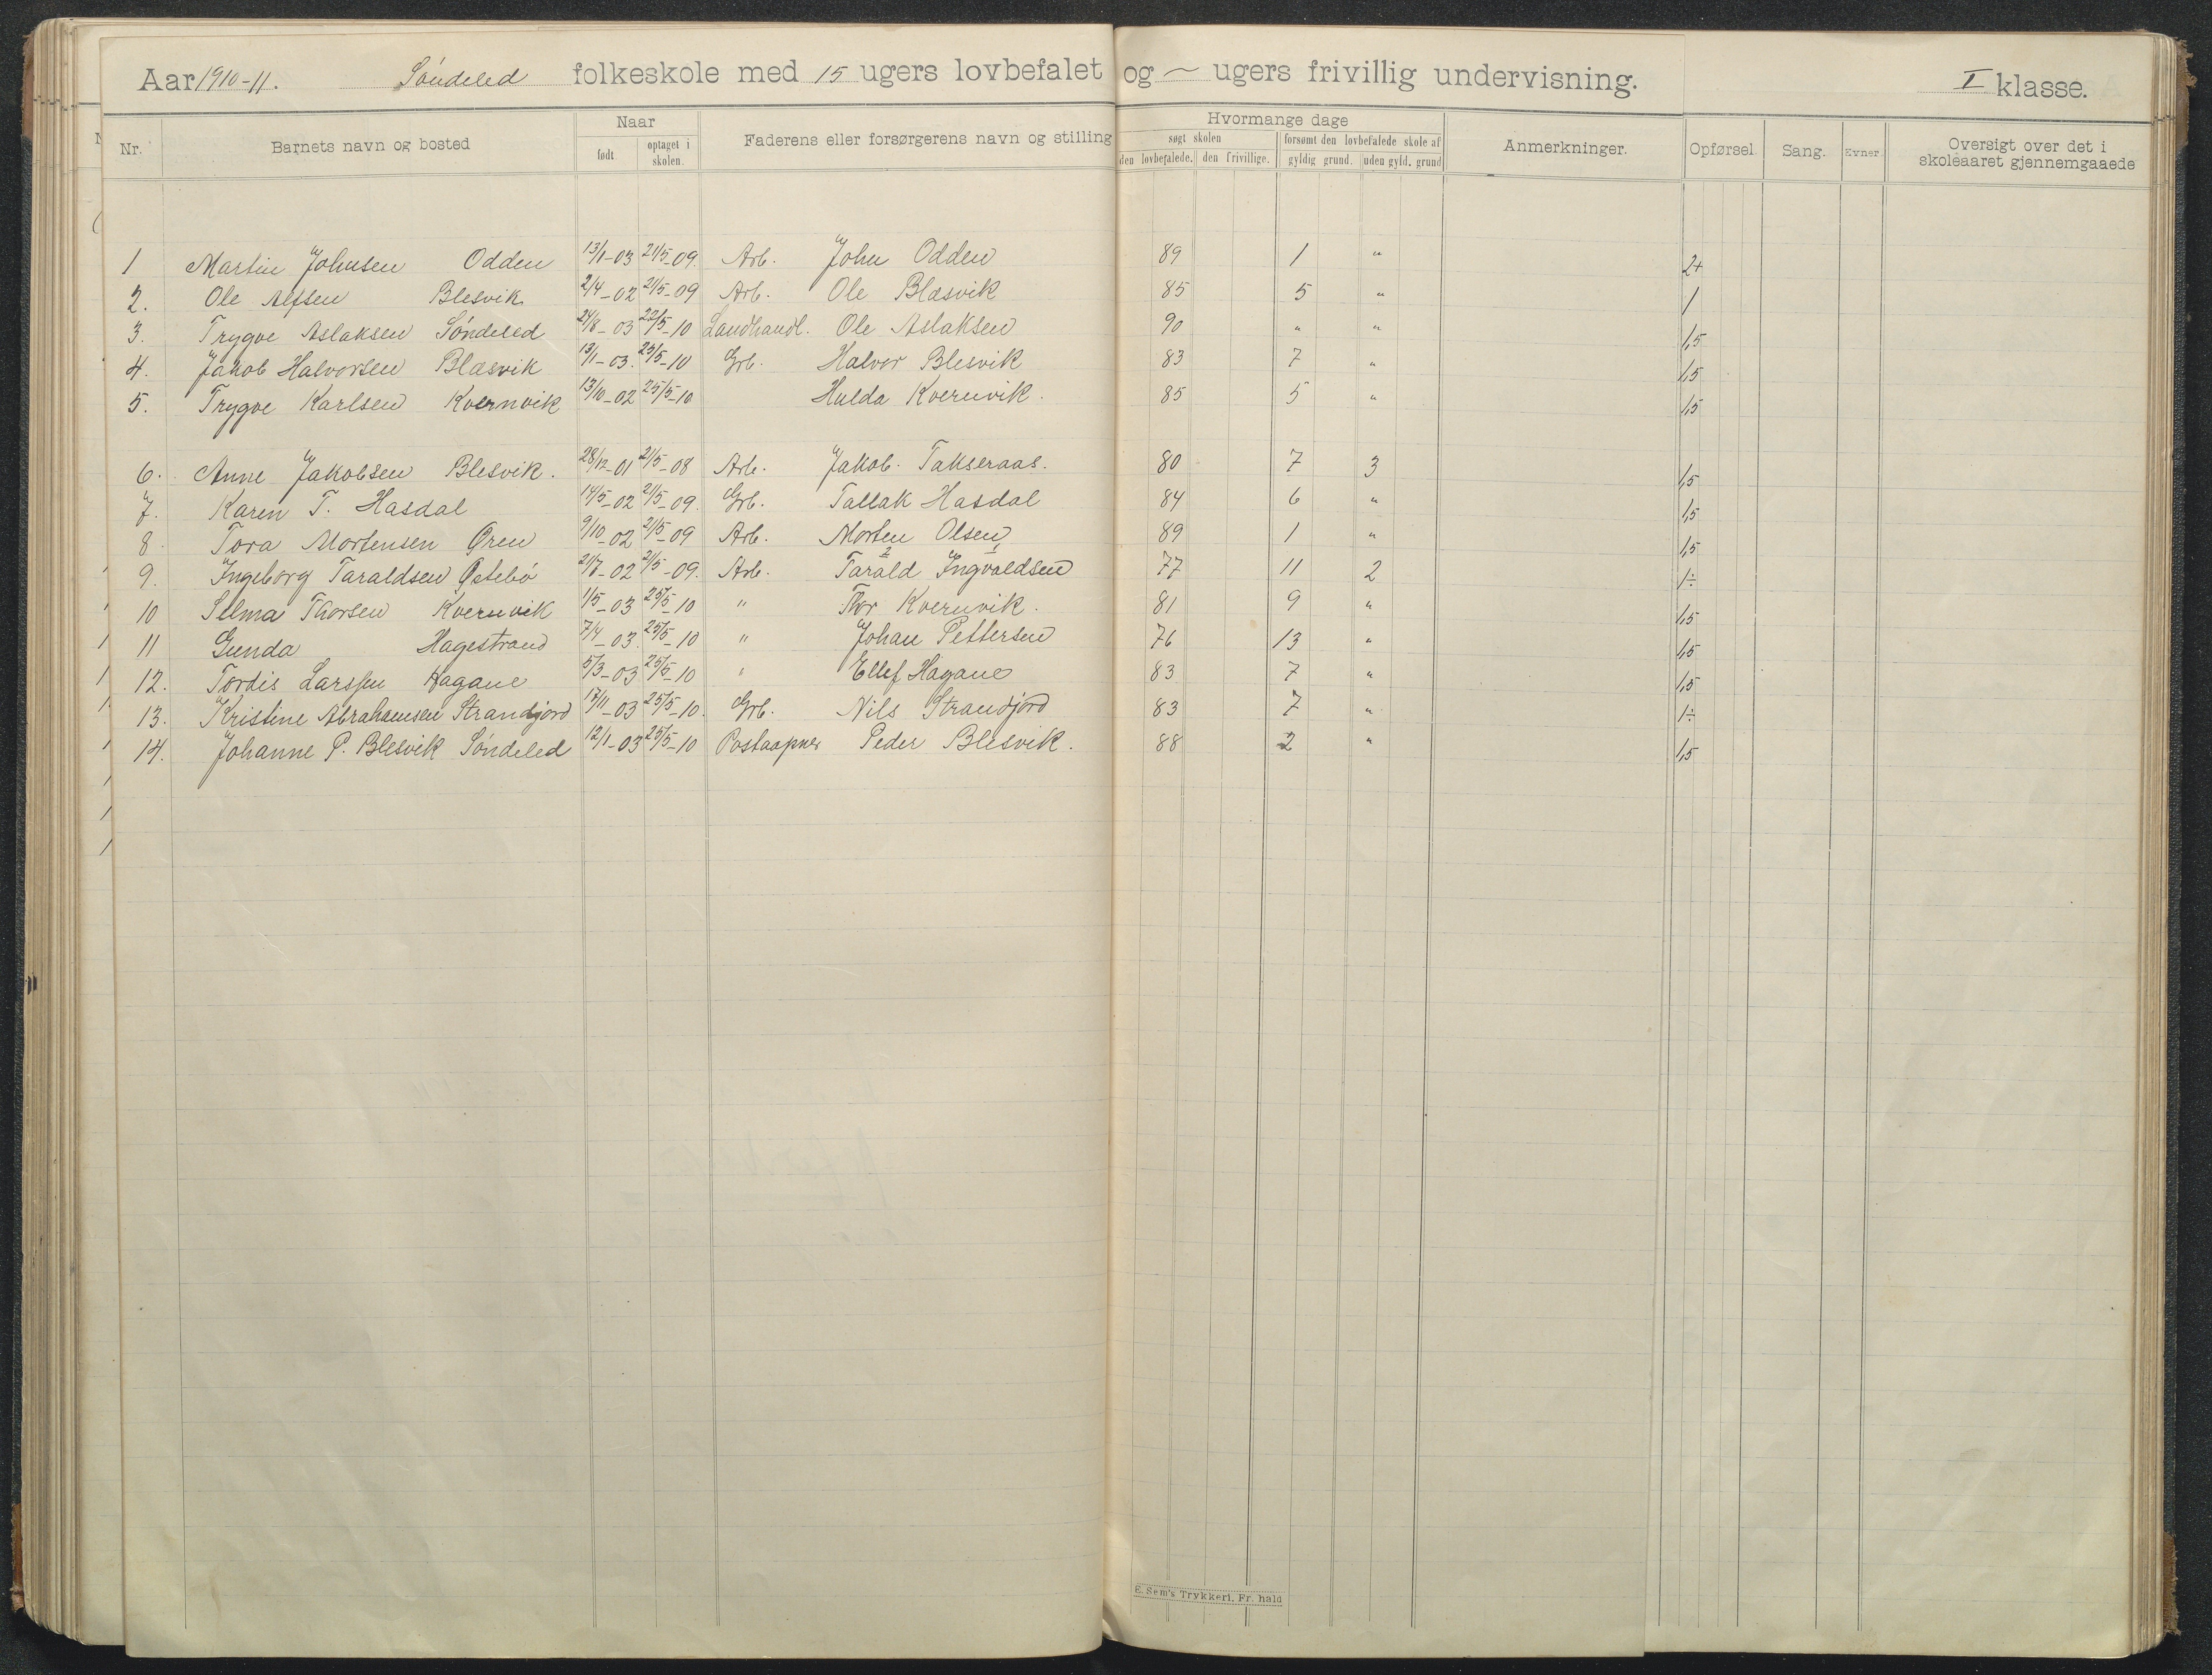 Aar 1910-11. Söndeled folkeskole med 15 ugers lovbefalet og ~ ugers frivillig undervisning. I klasse.
Nr. Barnets navn og bosted Naar Faderens eller forsørgerens navn og stilling Hvormange dage Anmerkninger. Opførsel. Sang. Evner. Oversigt over det i skoleaaret gjennemgaaede
født optaget i skolen. søgt skolen forsømt den lovbefalede skole af
den lovbefalede. den frivillige. gyldig grund. uden gyld. grund
1 Martin Johnsen Odden 13/1-03 21/5-09. Arb. John Odden 89 1 " 2+
2. Ole Alfsen Blesvik 2/4-02 21/5-09 Arb. Ole Blæsvik 85 5 " 1
3. Trygve Aslaksen Söndeled 24/8-03 22/5-10 Landhandl. Ole Aslaksen 90 " " 1,5
4. Jakob Halvorsen Blæsvik 13/1-03. 25/5-10 Grb. Halvor Blesvik 83 7 " 1,5
5. Trygve Karlsen Kvernvik 13/10-02 25/5-10 Hulda Kvernvik. 85 5 " 1,5
6. Anne Jakobsen Blesvik. 28/12-01 21/5-08 Arb. Jakob. Takseraas. 80 7 3 1,5
7. Karen T. Hasdal 14/5-02 21/5-09. Grb. Tallak Hasdal 84 6 " 1,5
8. Tora Mortensen Øren 9/10-02 21/5-09 Arb. Morten Olsen 89 1 " 1,5
9. Ingeborg Taraldsen Östebö 21/7-02 21/5-09. Arb. Tarald Ingvaldsen 77 11 2 1÷
10 Selma Thorsen Kvernvik 1/5-03 25/5-10 " Thor Kvernvik. 81 9 " 1,5
11 Gunda Hagestrand 7/4-03. 25/5-10 " Johan Pettersen 76 13 " 1,5
12. Tordis Larssen Hagane 5/3-03 25/5-10 " Ellef Hagane 83 7 " 1,5
13. Kristine Abrahamsen Strandjord 17/11-03 25/5-10. Grb. Nils Strandjord 83 7 " 1÷
14. Johanne P. Blesvik Söndeled 12/1-03 25/5-10 Postaapner Peder Blesvik. 88 2 " 1,5
E. Sem's Trykkeri, Fr. hald